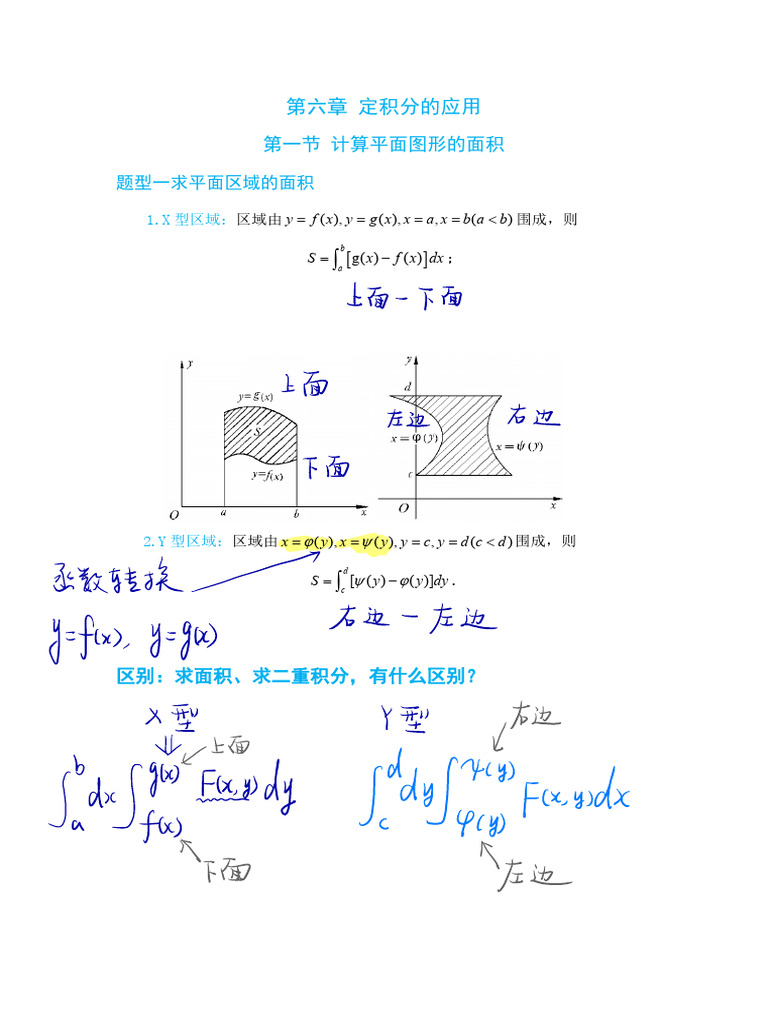 第六章 定积分的应用
第一节 计算平面图形的面积
题型一求平面区域的面积
1. X 型区域：区域由 y = f (x), y = g(x), x = a, x = b(a < b) 围成，则
S = ∫_a^b [g(x) − f (x)]dx；
上面 − 下面
y
y=g(x)
上面
S
y=f(x)
下面
O a b x
y
d
左边
右边
x=φ(y)
x=ψ(y)
c
O x
2. Y 型区域：区域由 x = φ(y), x = ψ(y), y = c, y = d(c < d) 围成，则
函数转换
S = ∫_c^d [ψ(y) − φ(y)]dy．
右边 − 左边
y=f(x), y=g(x)
区别：求面积、求二重积分，有什么区别？
X 型
Y 型
右边
上面
∫_a^b dx ∫_{f(x)}^{g(x)} F(x, y) dy
∫_c^d dy ∫_{φ(y)}^{ψ(y)} F(x, y) dx
下面
左边